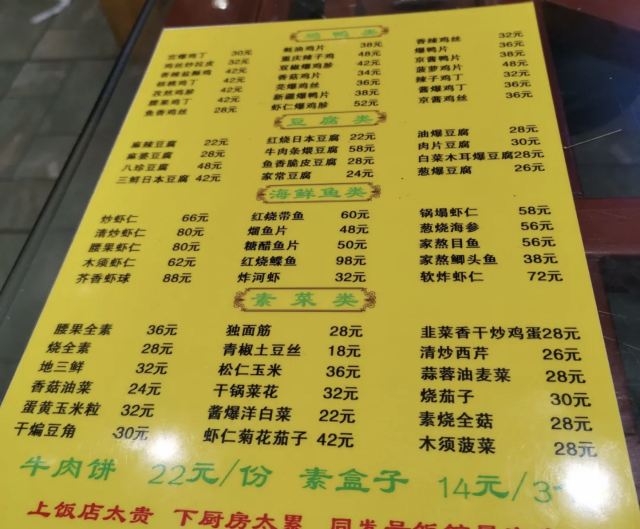 鸡鸭类
宫爆鸡丁 30元 蚝油鸡片 38元 香辣鸡丝 32元
鸡丝炒拉皮 32元 重庆辣子鸡 48元 爆鸭片 36元
42元 双椒爆鸡胗 42元 京酱鸭片 38元
辣椒鸡丁 42元 香菇鸡片 34元 菠萝鸡片 48元
孜然鸡胗 42元 芫爆鸡片 36元 辣子鸡丁 32元
腰果鸡丁 42元 新疆爆鸭片 38元 酱爆鸡丁 36元
鱼香鸡丝 28元 虾仁爆鸡胗 52元 京酱鸡丝 36元
豆腐类
麻辣豆腐 22元 红烧日本豆腐 22元 油爆豆腐 28元
麻婆豆腐 28元 牛肉条煨豆腐 58元 肉片豆腐 30元
八珍豆腐 48元 鱼香脆皮豆腐 28元 白菜木耳爆豆腐28元
三鲜日本豆腐 42元 家常豆腐 24元 葱爆豆腐 26元
海鲜鱼类
炒虾仁 66元 红烧带鱼 60元 锅塌虾仁 58元
清炒虾仁 80元 熘鱼片 48元 葱烧海参 56元
腰果虾仁 80元 糖醋鱼片 50元 家熬目鱼 56元
木须虾仁 62元 红烧鲽鱼 98元 家熬鲫头鱼 38元
芥香虾球 88元 炸河虾 32元 软炸虾仁 72元
素菜类
腰果全素 36元 独面筋 28元 韭菜香干炒鸡蛋28元
烧全素 28元 青椒土豆丝 18元 清炒西芹 26元
地三鲜 32元 松仁玉米 36元 蒜蓉油麦菜 28元
香菇油菜 24元 干锅菜花 32元 烧茄子 30元
蛋黄玉米粒 32元 酱爆洋白菜 22元 素烧全菇 28元
干煸豆角 30元 虾仁菊花茄子 42元 木须菠菜 28元
牛肉饼 22元/份 素盒子 14元/3
上饭店太贵 下厨房太累